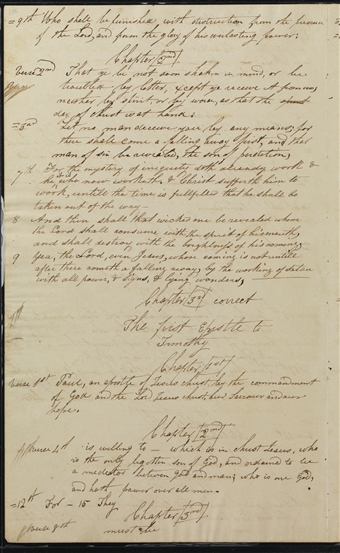 =9th Who shall be punished, with distruction from the presence
of the Lord, and from the glory of his everlasting power:
Chapter 2nd
verse 2nd That ye be not soon shaken in mind, or be
troubled by letter, xcept ye receive it from us,
neither by spirit, or by word, as that the
day of christ wat hand:
=3rd Let no man deceive you by any means, for
there shall come a falling away first, and that
man of sin be revealed, the son of perdition,
7th For the mystery of iniquity doth already work &
he who now worketh, & Christ suffereth him to
work, untill the time is fullfilled that he shall be
taken out of the way
8 And then shall that wicked one be revealed whom
the Lord shall consume with the spirit of his mouth,
and shall destroy with the brightness of his coming,
9 Yea, the Lord, even Jesus, whose coming is not untill
after there cometh a falling away, by the working of satan
with all power, & signs, & lying wonders,
Chapter 3rd correct
The first Epistle to
Timothy
Chapter 1st
verse 1st Paul, an apostle of Jesus christ, by the commandment
of God and the Lord Jesus christ, our Saviour and our
hope.
Chapter 2nd
verse 4th is willing to – which is in christ Jesus, who
is the only begotten son of God, and ordained to be
a mediator between god and man; who is one God,
and hath power over all men.
=12th For – 15 They
Chapter 3rd
verse 8th must be